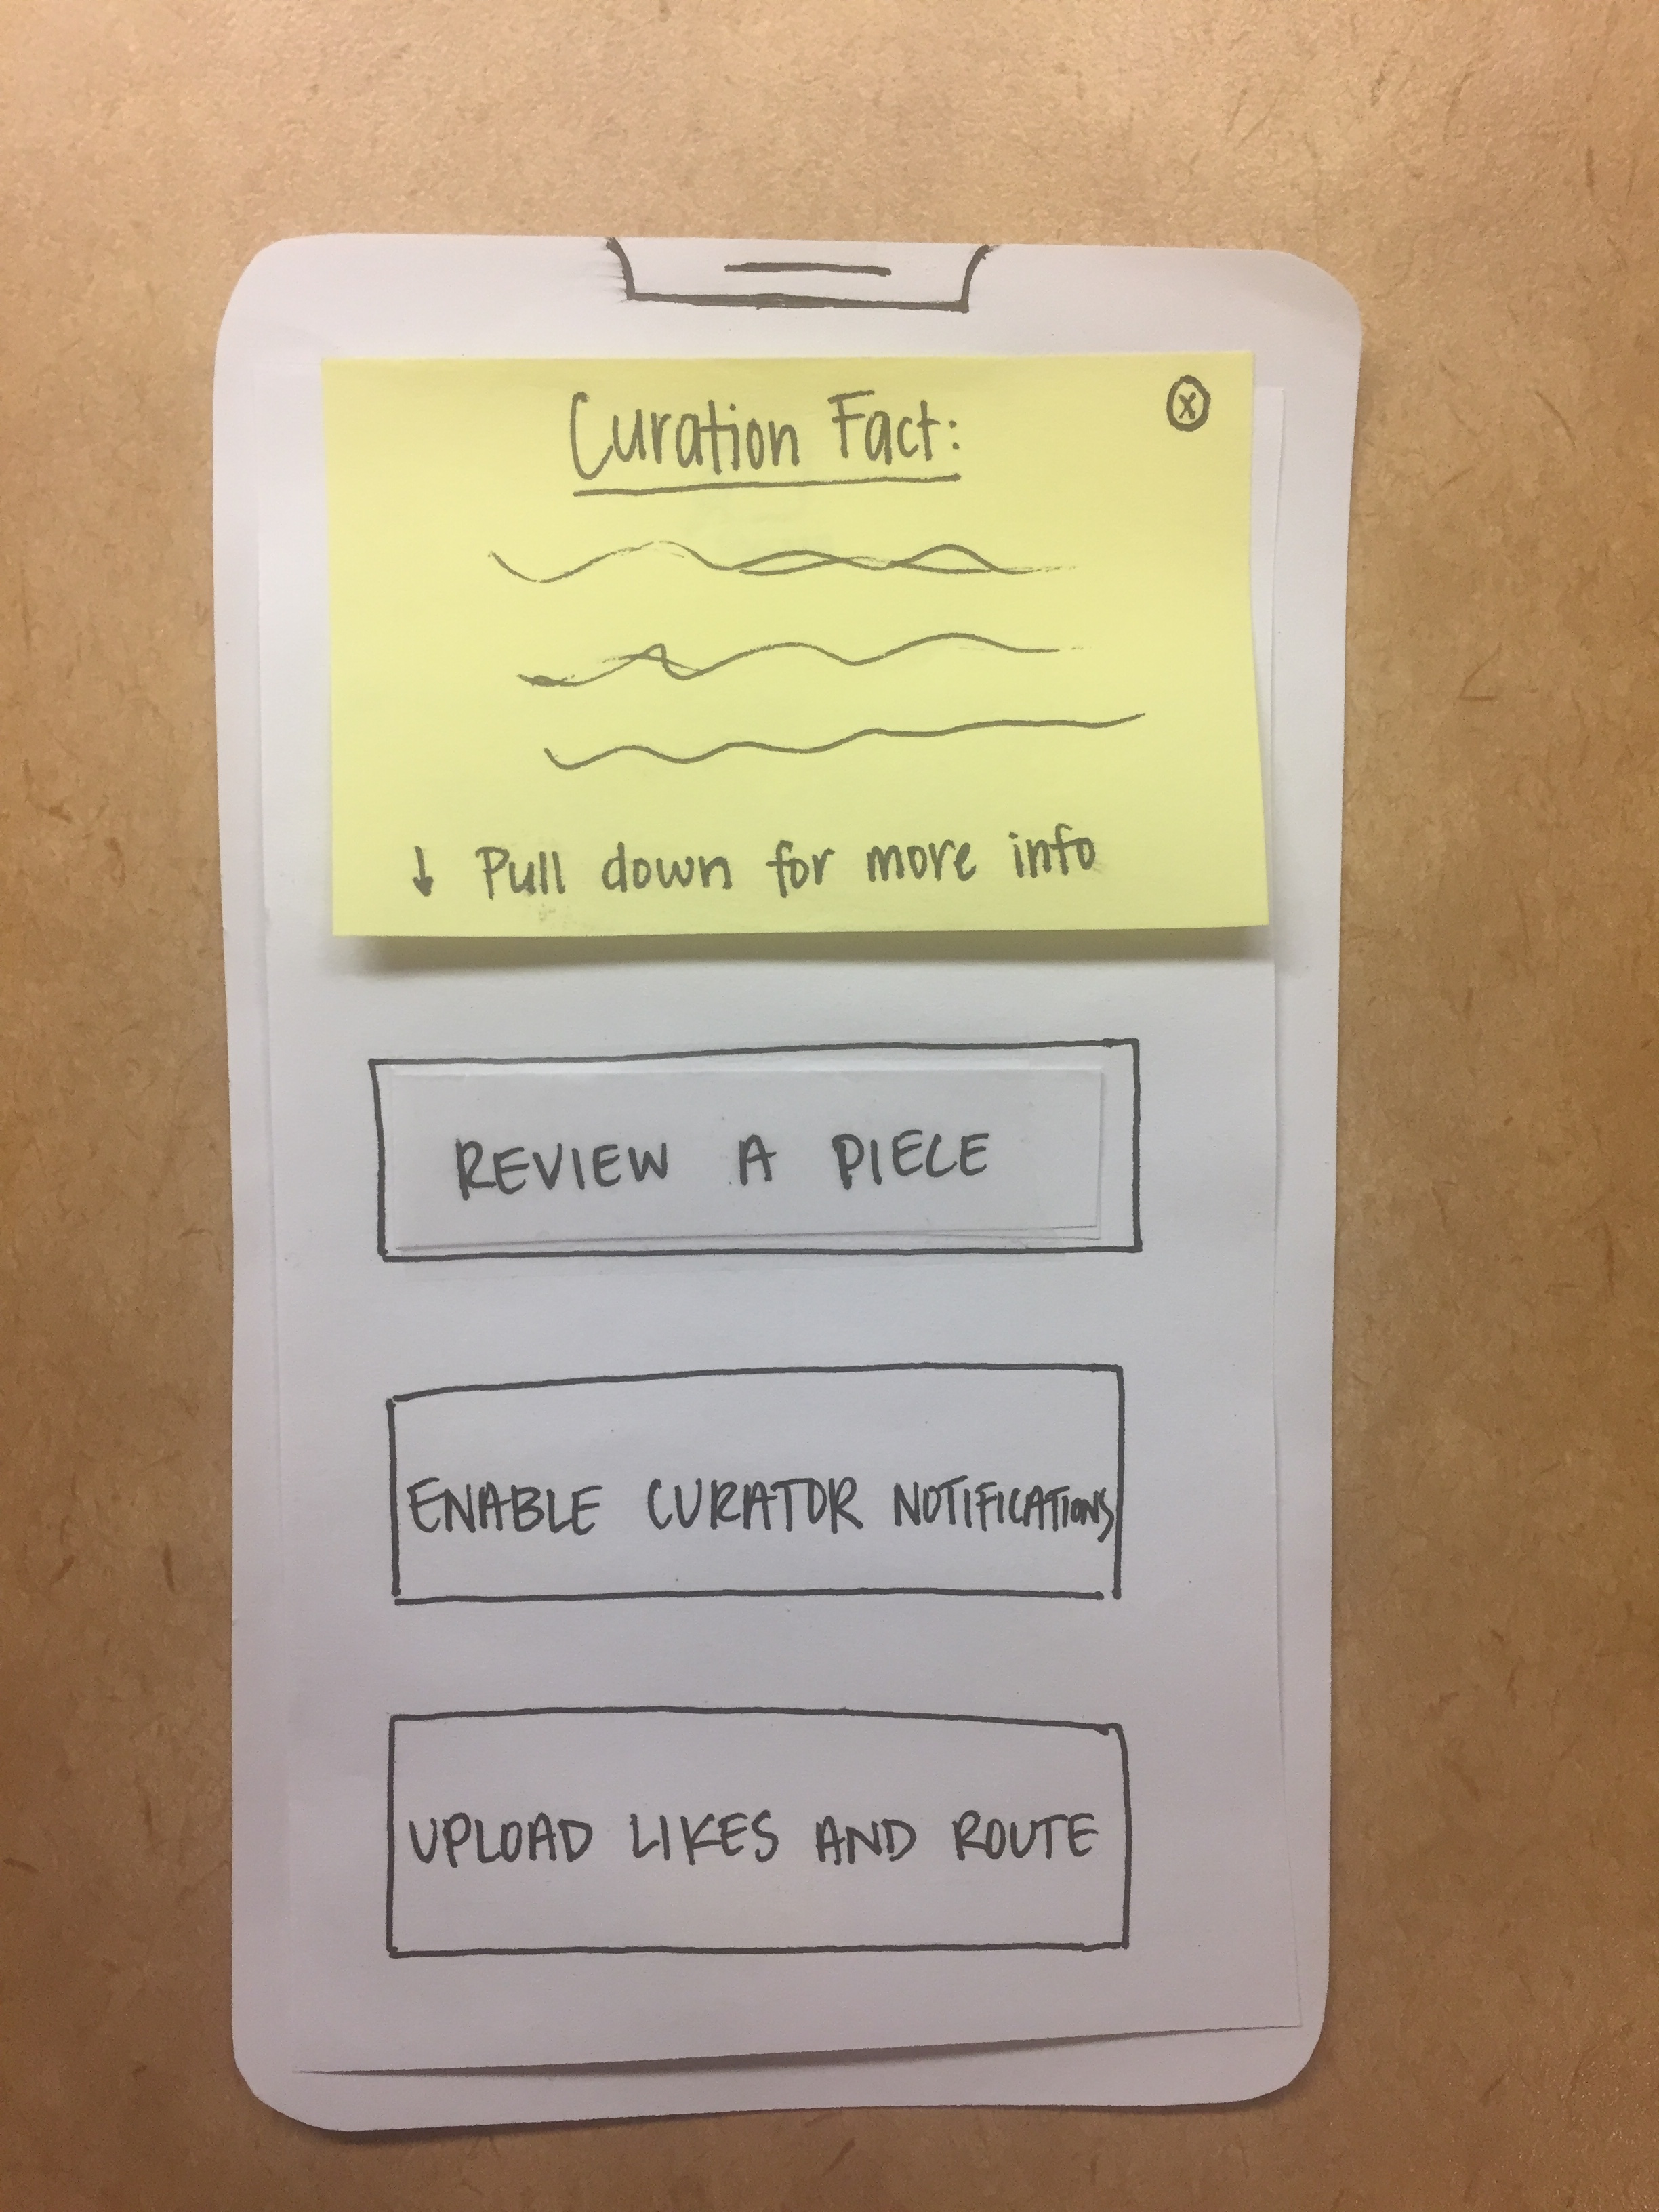 Curation Fact:
x
↓ Pull down for more info
REVIEW A PIECE
ENABLE CURATOR NOTIFICATIONS
UPLOAD LIKES AND ROUTE